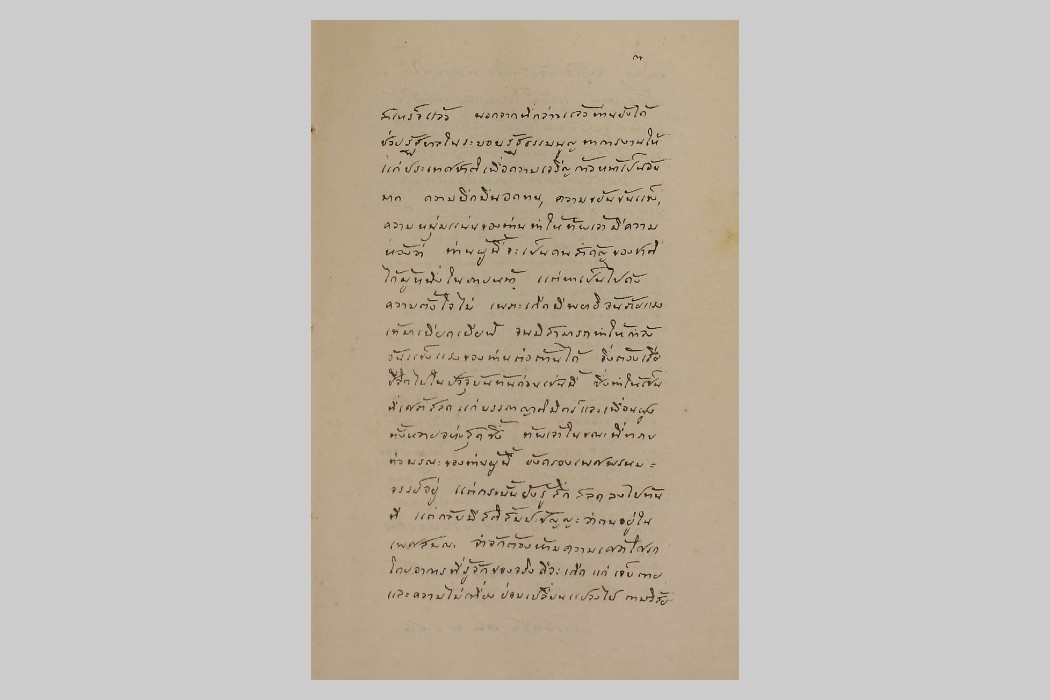 ๓
สำเร็จแล้ว นอกจากที่กล่าวแล้วท่านยังได้
ช่วยรัฐบาลในระบอบรัฐธรรมนูญ ทำการงานให้
แก่ประเทศชาติเพื่อความเจริญก้าวหน้าเป็นอัน
มาก ความบึกบึนอดทน, ความขยันขันแข็ง,
ความหนุ่มแน่นของท่านทำให้ข้าพเจ้ามีความ
หวังว่า ท่านผู้นี้จะเป็นคนสำคัญของชาติ
ได้ผู้หนึ่งในภายหน้า แต่หาเป็นไปดัง
ความตั้งใจไม่ เพราะเกิดมีพยาธิอันภัยแรง
เข้ามาเบียดเบียฬ จนมิสามารถทำให้กำลัง
อันแข็งแรงของท่านต่อต้านได้ จึ่งต้องเสีย
ชีวิตไปในปัจจุบันทันด่วนเช่นนี้ ซึ่งทำให้เป็น
ที่เศร้าสลด แก่บรรดาญาติมิตร์และเพื่อนฝูง
ทั้งหลายอย่างสุดซึ้ง ข้าพเจ้าในขณะที่ทราบ
ข่าวมรณะของท่านผู้นี้ ยังครองเพศพรหม=
จรรย์อยู่ แต่กระนั้นยังรู้สึกสลดลงไปทัน
ที แต่กลับมีสติสัมปชัญญะว่าตนอยู่ใน
เพศสมณะ จำจักต้องห้ามความเศร้าโศก
โดยอาการที่รู้จักของจริง คือเกิด แก่ เจ็บ ตาย
และความไม่เที่ยง ย่อมเปลี่ยนแปลงไป ตามวิสัย